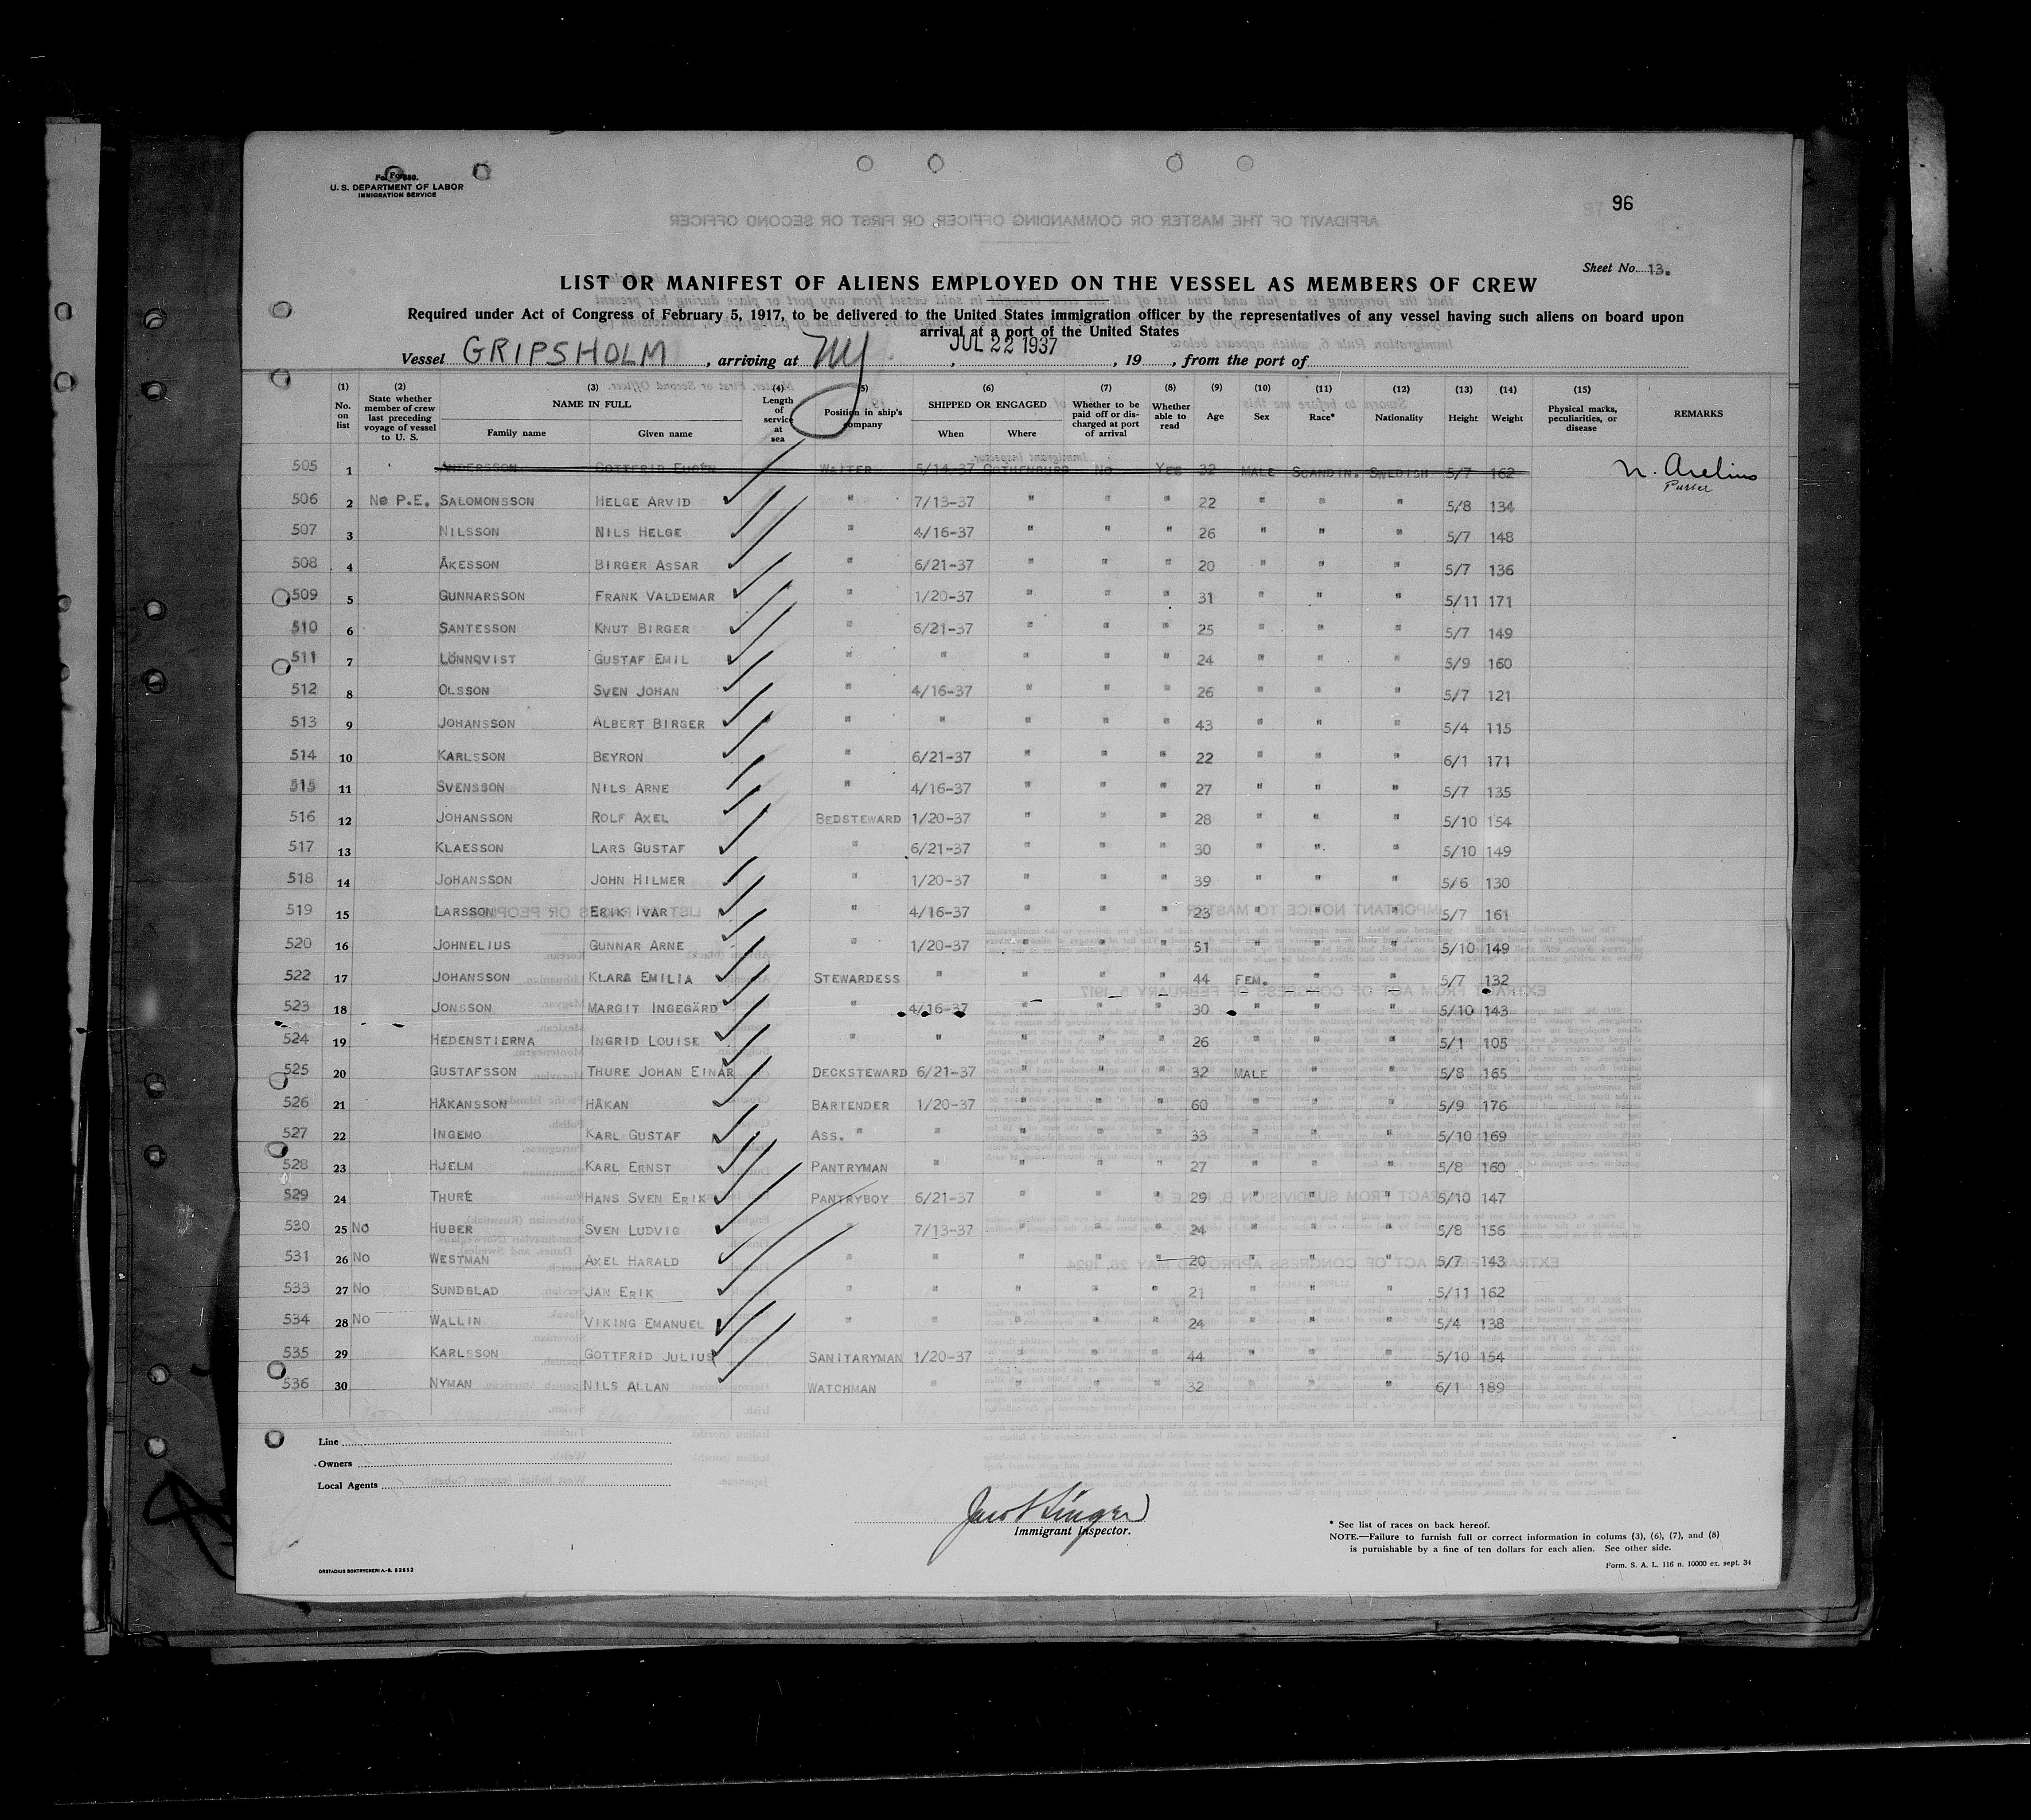 96
U. S. DEPARTMENT OF LABOR
IMMIGRATION SERVICE
AFFIDAVIT OF THE MASTER OR COMMANDING OFFICER, OR FIRST OR SECOND OFFICER
Sheet No. 13.
LIST OR MANIFEST OF ALIENS EMPLOYED ON THE VESSEL AS MEMBERS OF CREW
Required under Act of Congress of February 5, 1917, to be delivered to the United States immigration officer by the representatives of any vessel having such aliens on board upon
arrival at a port of the United States
Vessel GRIPSHOLM, arriving at NY. , JUL 22 1937, 19 , from the port of
(1) No. on list (2) State whether member of crew last preceding voyage of vessel to U. S. (3) NAME IN FULL Family name Given name (4) Length of service at sea (5) Position in ship's company (6) SHIPPED OR ENGAGED When Where (7) Whether to be paid off or discharged at port of arrival (8) Whether able to read (9) Age (10) Sex (11) Race* (12) Nationality (13) Height (14) Weight (15) Physical marks, peculiarities, or disease REMARKS
505 1 ANDERSSON GOTTFRID EUGÉN WAITER 5/14-37 GOTHENBURG NO YES 32 MALE SCANDIN. SWEDISH 5/7 162 N. Arelius
Purser
506 2 NO P.E. SALOMONSSON HELGE ARVID " 7/13-37 " " " 22 " " " 5/8 134
507 3 NILSSON NILS HELGE " 4/16-37 " " " 26 " " " 5/7 148
508 4 ÅKESSON BIRGER ASSAR " 6/21-37 " " " 20 " " " 5/7 136
509 5 GUNNARSSON FRANK VALDEMAR " 1/20-37 " " " 31 " " " 5/11 171
510 6 SANTESSON KNUT BIRGER " 6/21-37 " " " 25 " " " 5/7 149
511 7 LÖNNQVIST GUSTAF EMIL " " " " " 24 " " " 5/9 160
512 8 OLSSON SVEN JOHAN " 4/16-37 " " " 26 " " " 5/7 121
513 9 JOHANSSON ALBERT BIRGER " " " " " 43 " " " 5/4 115
514 10 KARLSSON BEYRON " 6/21-37 " " " 22 " " " 6/1 171
515 11 SVENSSON NILS ARNE " 4/16-37 " " " 27 " " " 5/7 135
516 12 JOHANSSON ROLF AXEL BEDSTEWARD 1/20-37 " " " 28 " " " 5/10 154
517 13 KLAESSON LARS GUSTAF " 6/21-37 " " " 30 " " " 5/10 149
518 14 JOHANSSON JOHN HILMER " 1/20-37 " " " 39 " " " 5/6 130
519 15 LARSSON ERIK IVAR " 4/16-37 " " " 23 " " " 5/7 161
520 16 JOHNELIUS GUNNAR ARNE " 1/20-37 " " " 51 " " " 5/10 149
522 17 JOHANSSON KLARA EMILIA STEWARDESS " " " " 44 FEM. " " 5/7 132
523 18 JONSSON MARGIT INGEGÄRD " 4/16-37 " " " 30 " " " 5/10 143
524 19 HEDENSTIERNA INGRID LOUISE " " " " " 26 " " " 5/1 105
525 20 GUSTAFSSON THURE JOHAN EINAR DECKSTEWARD 6/21-37 " " " 32 MALE " " 5/8 165
526 21 HÅKANSSON HÅKAN BARTENDER 1/20-37 " " " 60 " " " 5/9 176
527 22 INGEMO KARL GUSTAF ASS. " " " " " 33 " " " 5/10 169
528 23 HJELM KARL ERNST PANTRYMAN " " " " 27 " " " 5/8 160
529 24 THURE HANS SVEN ERIK PANTRYBOY 6/21-37 " " " 29 " " " 5/10 147
530 25 NO HUBER SVEN LUDVIG " 7/13-37 " " " 24 " " " 5/8 156
531 26 NO WESTMAN AXEL HARALD " " " " " 20 " " " 5/7 143
533 27 NO SUNDBLAD JAN ERIK " " " " " 21 " " " 5/11 162
534 28 NO WALLIN VIKING EMANUEL " " " " " 24 " " " 5/4 138
535 29 KARLSSON GOTTFRID JULIUS SANITARYMAN 1/20-37 " " " 44 " " " 5/10 154
536 30 NYMAN NILS ALLAN WATCHMAN " " " " 32 " " " 6/1 189
Line
Owners
Local Agents
Jacob Singer
Immigrant Inspector.
* See list of races on back hereof.
NOTE.—Failure to furnish full or correct information in colums (3), (6), (7), and (8)
is punishable by a fine of ten dollars for each alien. See other side.
Form. S. A. L. 116 n. 10000 ex. sept. 34
ORSTADIUS BOKTRYCKERI A.-B. 52552